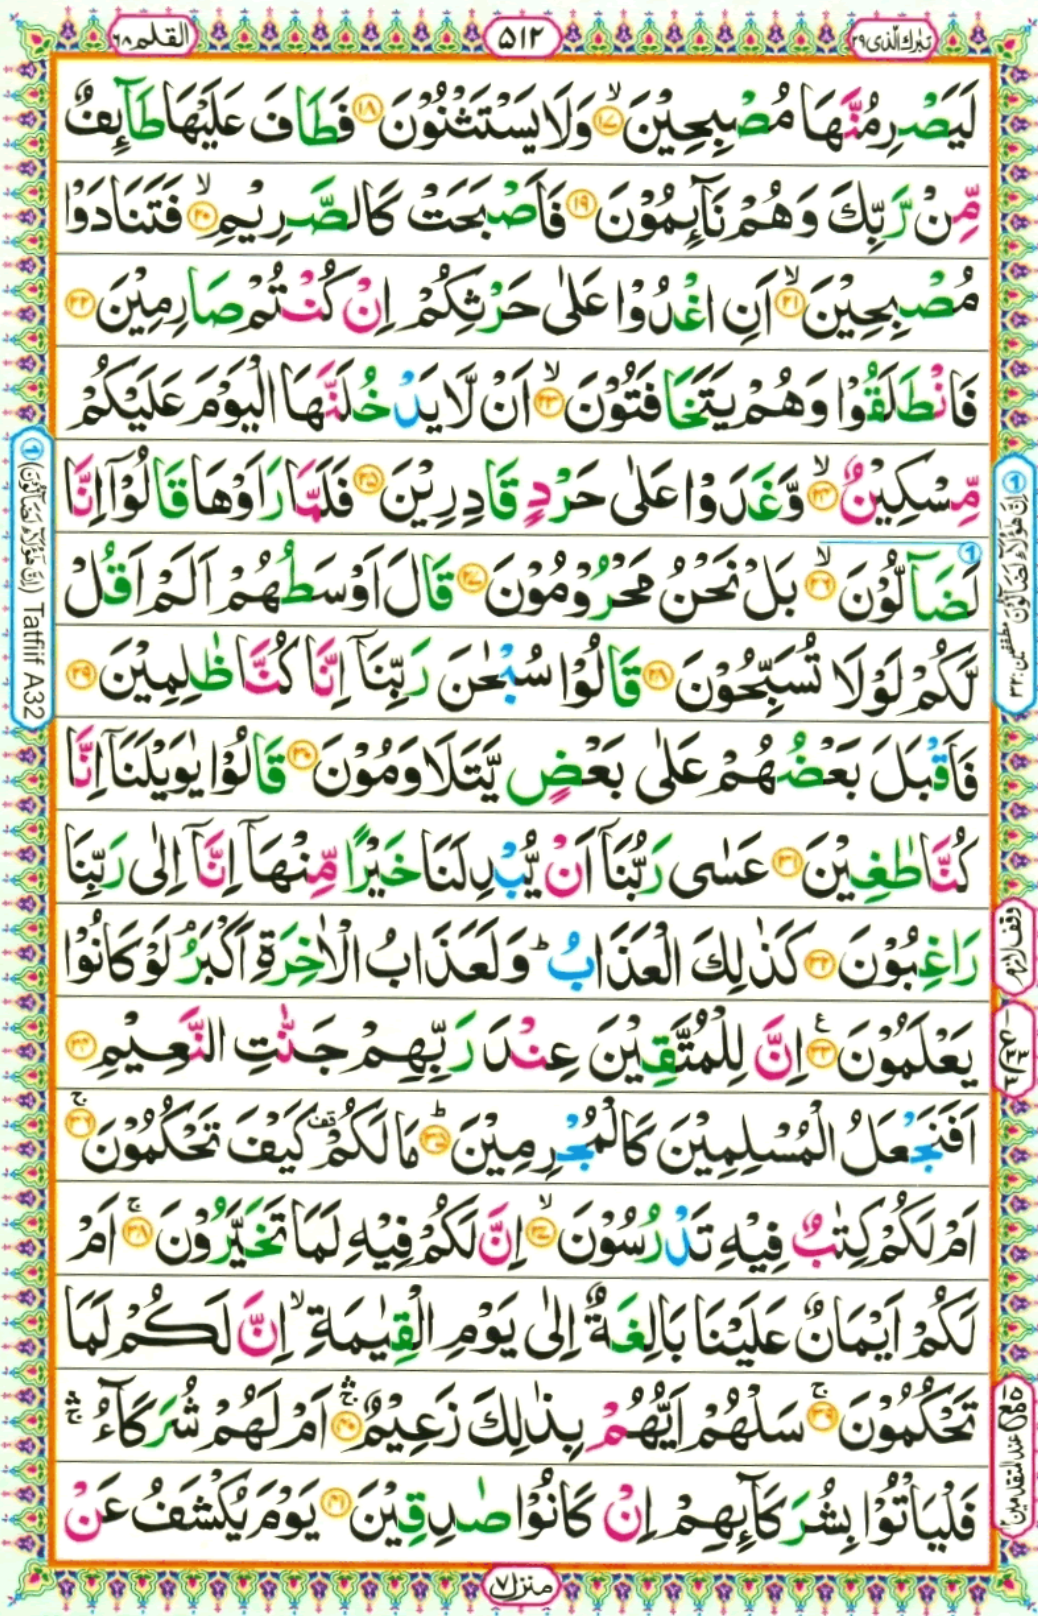 تبٰرك الّذی ۲۹
۵۱۲
القلم ۶۸
لَيَصْرِمُنَّهَا مُصْبِحِيْنَ ۙ‏﴿۱۷﴾ وَلَا يَسْتَثْنُوْنَ ﴿۱۸﴾ فَطَافَ عَلَيْهَا طَآئِفٌ
مِّنْ رَّبِّكَ وَهُمْ نَآئِمُوْنَ ﴿۱۹﴾ فَاَصْبَحَتْ كَالصَّرِيْمِ ۙ‏﴿۲۰﴾ فَتَنَادَوْا
مُصْبِحِيْنَ ۙ‏﴿۲۱﴾ اَنِ اغْدُوْا عَلٰى حَرْثِكُمْ اِنْ كُنْتُمْ صَارِمِيْنَ ﴿۲۲﴾
فَانْطَلَقُوْا وَهُمْ يَتَخَافَتُوْنَ ۙ‏﴿۲۳﴾ اَنْ لَّا يَدْخُلَنَّهَا الْيَوْمَ عَلَيْكُمْ
مِّسْكِيْنٌ ۙ‏﴿۲۴﴾ وَّغَدَوْا عَلٰى حَرْدٍ قَادِرِيْنَ ﴿۲۵﴾ فَلَمَّا رَاَوْهَا قَالُوْۤا اِنَّا
لَضَآلُّوْنَ ۙ‏﴿۲۶﴾ بَلْ نَحْنُ مَحْرُوْمُوْنَ ﴿۲۷﴾ قَالَ اَوْسَطُهُمْ اَلَمْ اَقُلْ
لَّكُمْ لَوْلَا تُسَبِّحُوْنَ ﴿۲۸﴾ قَالُوْا سُبْحٰنَ رَبِّنَاۤ اِنَّا كُنَّا ظٰلِمِيْنَ ﴿۲۹﴾
فَاَقْبَلَ بَعْضُهُمْ عَلٰى بَعْضٍ يَّتَلَاوَمُوْنَ ﴿۳۰﴾ قَالُوْا يٰوَيْلَنَاۤ اِنَّا
كُنَّا طٰغِيْنَ ﴿۳۱﴾ عَسٰى رَبُّنَاۤ اَنْ يُّبْدِلَنَا خَيْرًا مِّنْهَاۤ اِنَّاۤ اِلٰى رَبِّنَا
رَاغِبُوْنَ ﴿۳۲﴾ كَذٰلِكَ الْعَذَابُ ؕ وَلَعَذَابُ الْاٰخِرَةِ اَكْبَرُ لَوْ كَانُوْا
يَعْلَمُوْنَ ﴿۳۳﴾ ع اِنَّ لِلْمُتَّقِيْنَ عِنْدَ رَبِّهِمْ جَنّٰتِ النَّعِيْمِ ﴿۳۴﴾
اَفَنَجْعَلُ الْمُسْلِمِيْنَ كَالْمُجْرِمِيْنَ ؕ‏﴿۳۵﴾ مَا لَكُمْ قف كَيْفَ تَحْكُمُوْنَ ۚ‏﴿۳۶﴾
اَمْ لَكُمْ كِتٰبٌ فِيْهِ تَدْرُسُوْنَ ۙ‏﴿۳۷﴾ اِنَّ لَكُمْ فِيْهِ لَمَا تَخَيَّرُوْنَ ۚ‏﴿۳۸﴾ اَمْ
لَكُمْ اَيْمَانٌ عَلَيْنَا بَالِغَةٌ اِلٰى يَوْمِ الْقِيٰمَةِ ۙ اِنَّ لَكُمْ لَمَا
تَحْكُمُوْنَ ۚ‏﴿۳۹﴾ سَلْهُمْ اَيُّهُمْ بِذٰلِكَ زَعِيْمٌ ۛۚ‏﴿۴۰﴾ اَمْ لَهُمْ شُرَكَآءُ ۛۚ
فَلْيَاْتُوْا بِشُرَكَآئِهِمْ اِنْ كَانُوْا صٰدِقِيْنَ ﴿۴۱﴾ يَوْمَ يُكْشَفُ عَنْ
① اِنَّ هٰٓؤُلَآءِ لَضَآلُّوْنَ مطففین: ۳۲
① (اِنَّ هٰٓؤُلَآءِ لَضَآلُّوْنَ) Tatfiif A32
وقف لازم
عند المتقدمین
منزل ۷